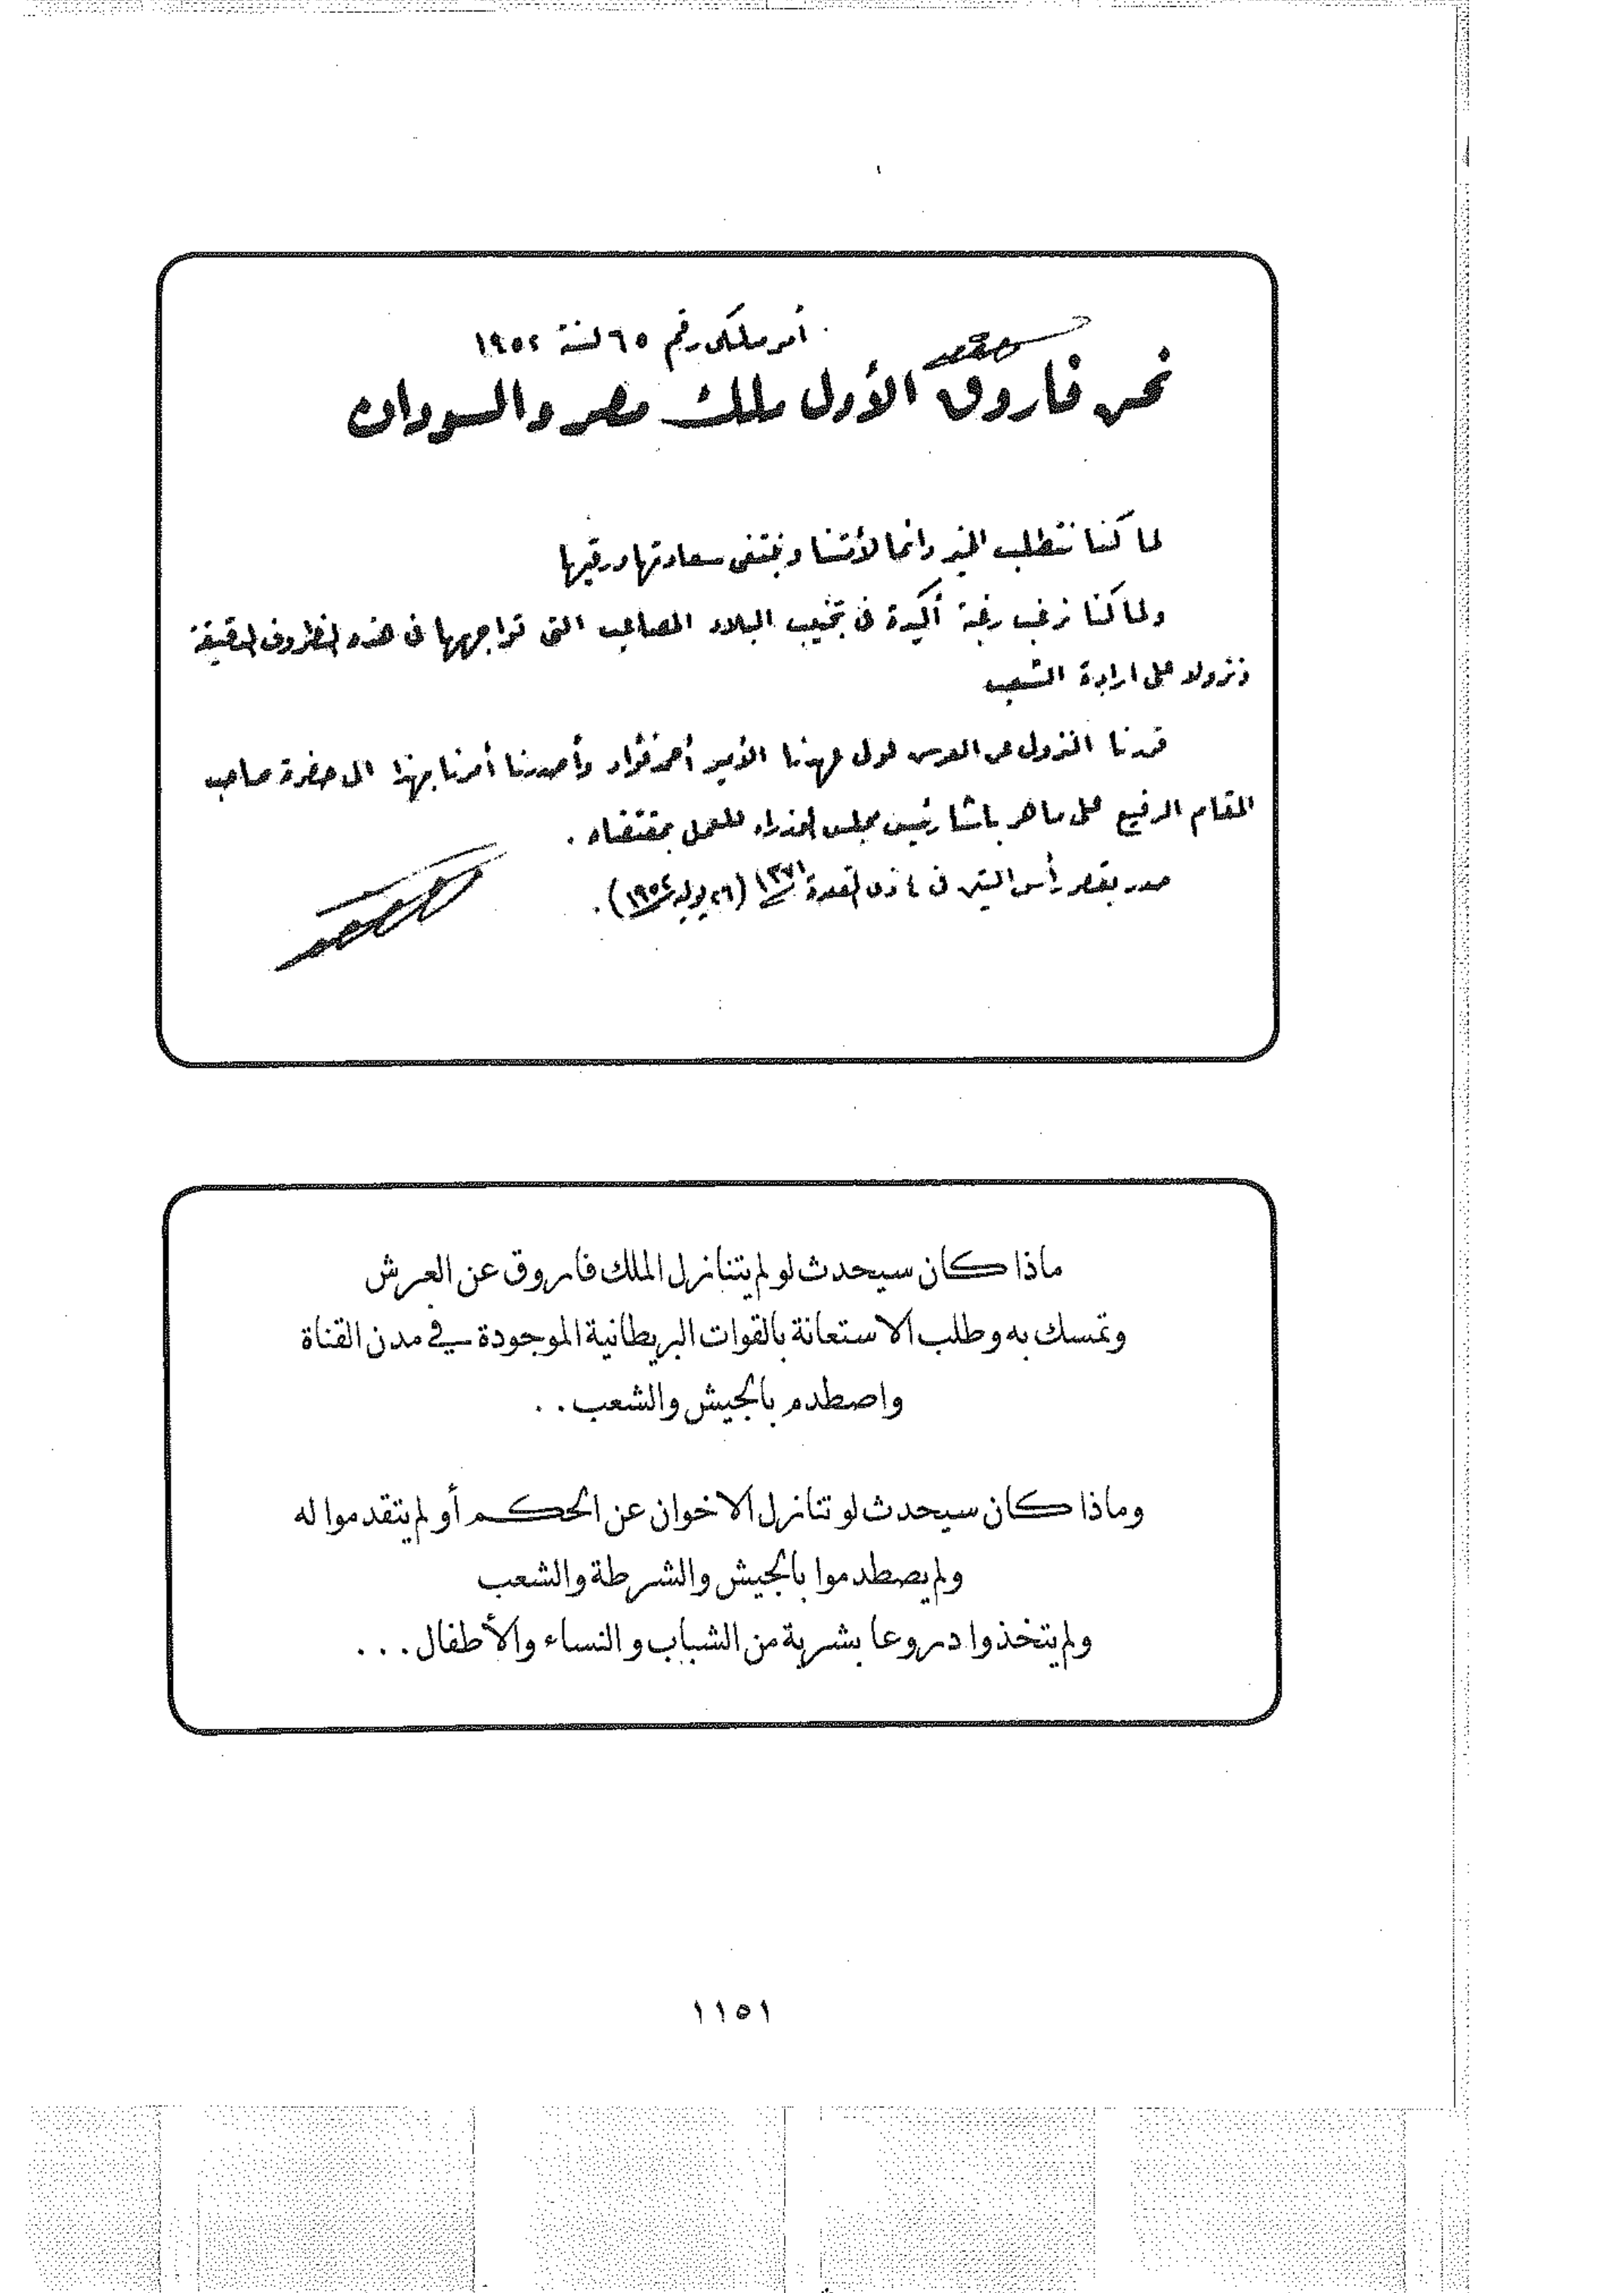 أمر ملكى رقم ٦٥ لسنة ١٩٥٢
نحن فاروق الأول ملك مصر والسودان
لما كنا نتطلب الخير دائما لأمتنا ونبتغى سعادتها ورقيها
ولما كنا نرغب رغبة أكيدة فى تجنيب البلاد المصاعب التى تواجهها فى هذه الظروف الدقيقة
ونزولا على ارادة الشعب
قررنا النزول عن العرش لولى عهدنا الأمير أحمد فؤاد وأصدرنا أمرنا بهذا الى حضرة صاحب
المقام الرفيع على ماهر باشا رئيس مجلس الوزراء للعمل بمقتضاه .
صدر بقصر رأس التين فى ٤ ذى القعدة ١٣٧١ (٢٦ يوليه ١٩٥٢) .
ماذا كان سيحدث لو لم يتنازل الملك فاروق عن العرش
وتمسك به وطلب الاستعانة بالقوات البريطانية الموجودة في مدن القناة
واصطدم بالجيش والشعب . .
وماذا كان سيحدث لو تنازل الاخوان عن الحكم أو لم يتقدموا له
ولم يصطدموا بالجيش والشرطة والشعب
ولم يتخذوا دروعا بشرية من الشباب و النساء والأطفال . . .
١١٥١